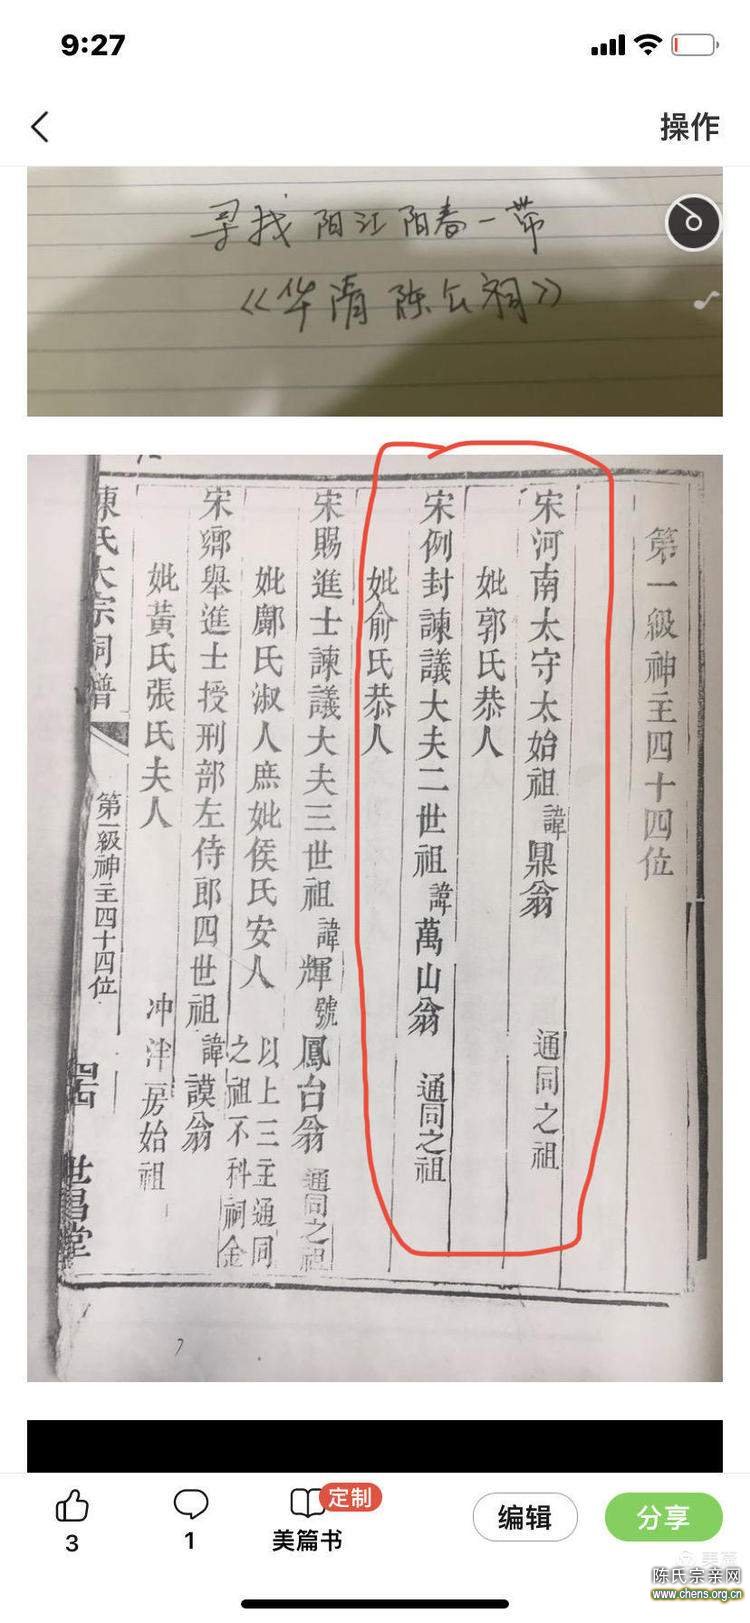 9:27
操作
寻找 阳江阳春一带
《华清陈公祠》
第一級神主四十四位
宋河南太守太始祖諱鼎翁 通同之祖
妣郭氏恭人
宋例封諫議大夫二世祖諱萬山翁 通同之祖
妣俞氏恭人
宋賜進士諫議大夫三世祖諱輝號鳳台翁 通同之祖
妣鄺氏淑人庶妣侯氏安人 以上三主通同
之祖不科祠金
宋鄉舉進士授刑部左侍郎四世祖諱謨翁
妣黃氏張氏夫人 冲泮房始祖
陳氏大宗祠譜
第一級神主四十四位
世昌堂
3
1
定制
美篇书
编辑
分享
美篇
陈氏宗亲网
www.chens.org.cn